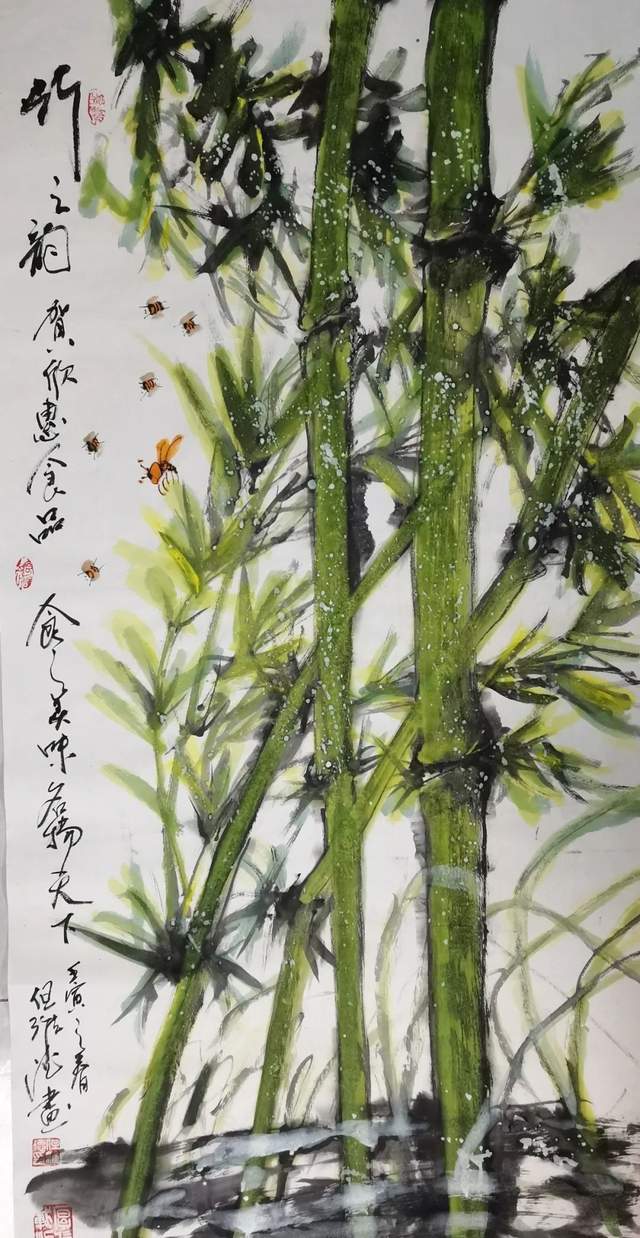 竹之韵
贺欣惠食品
食之美味名扬天下
壬寅之春
画